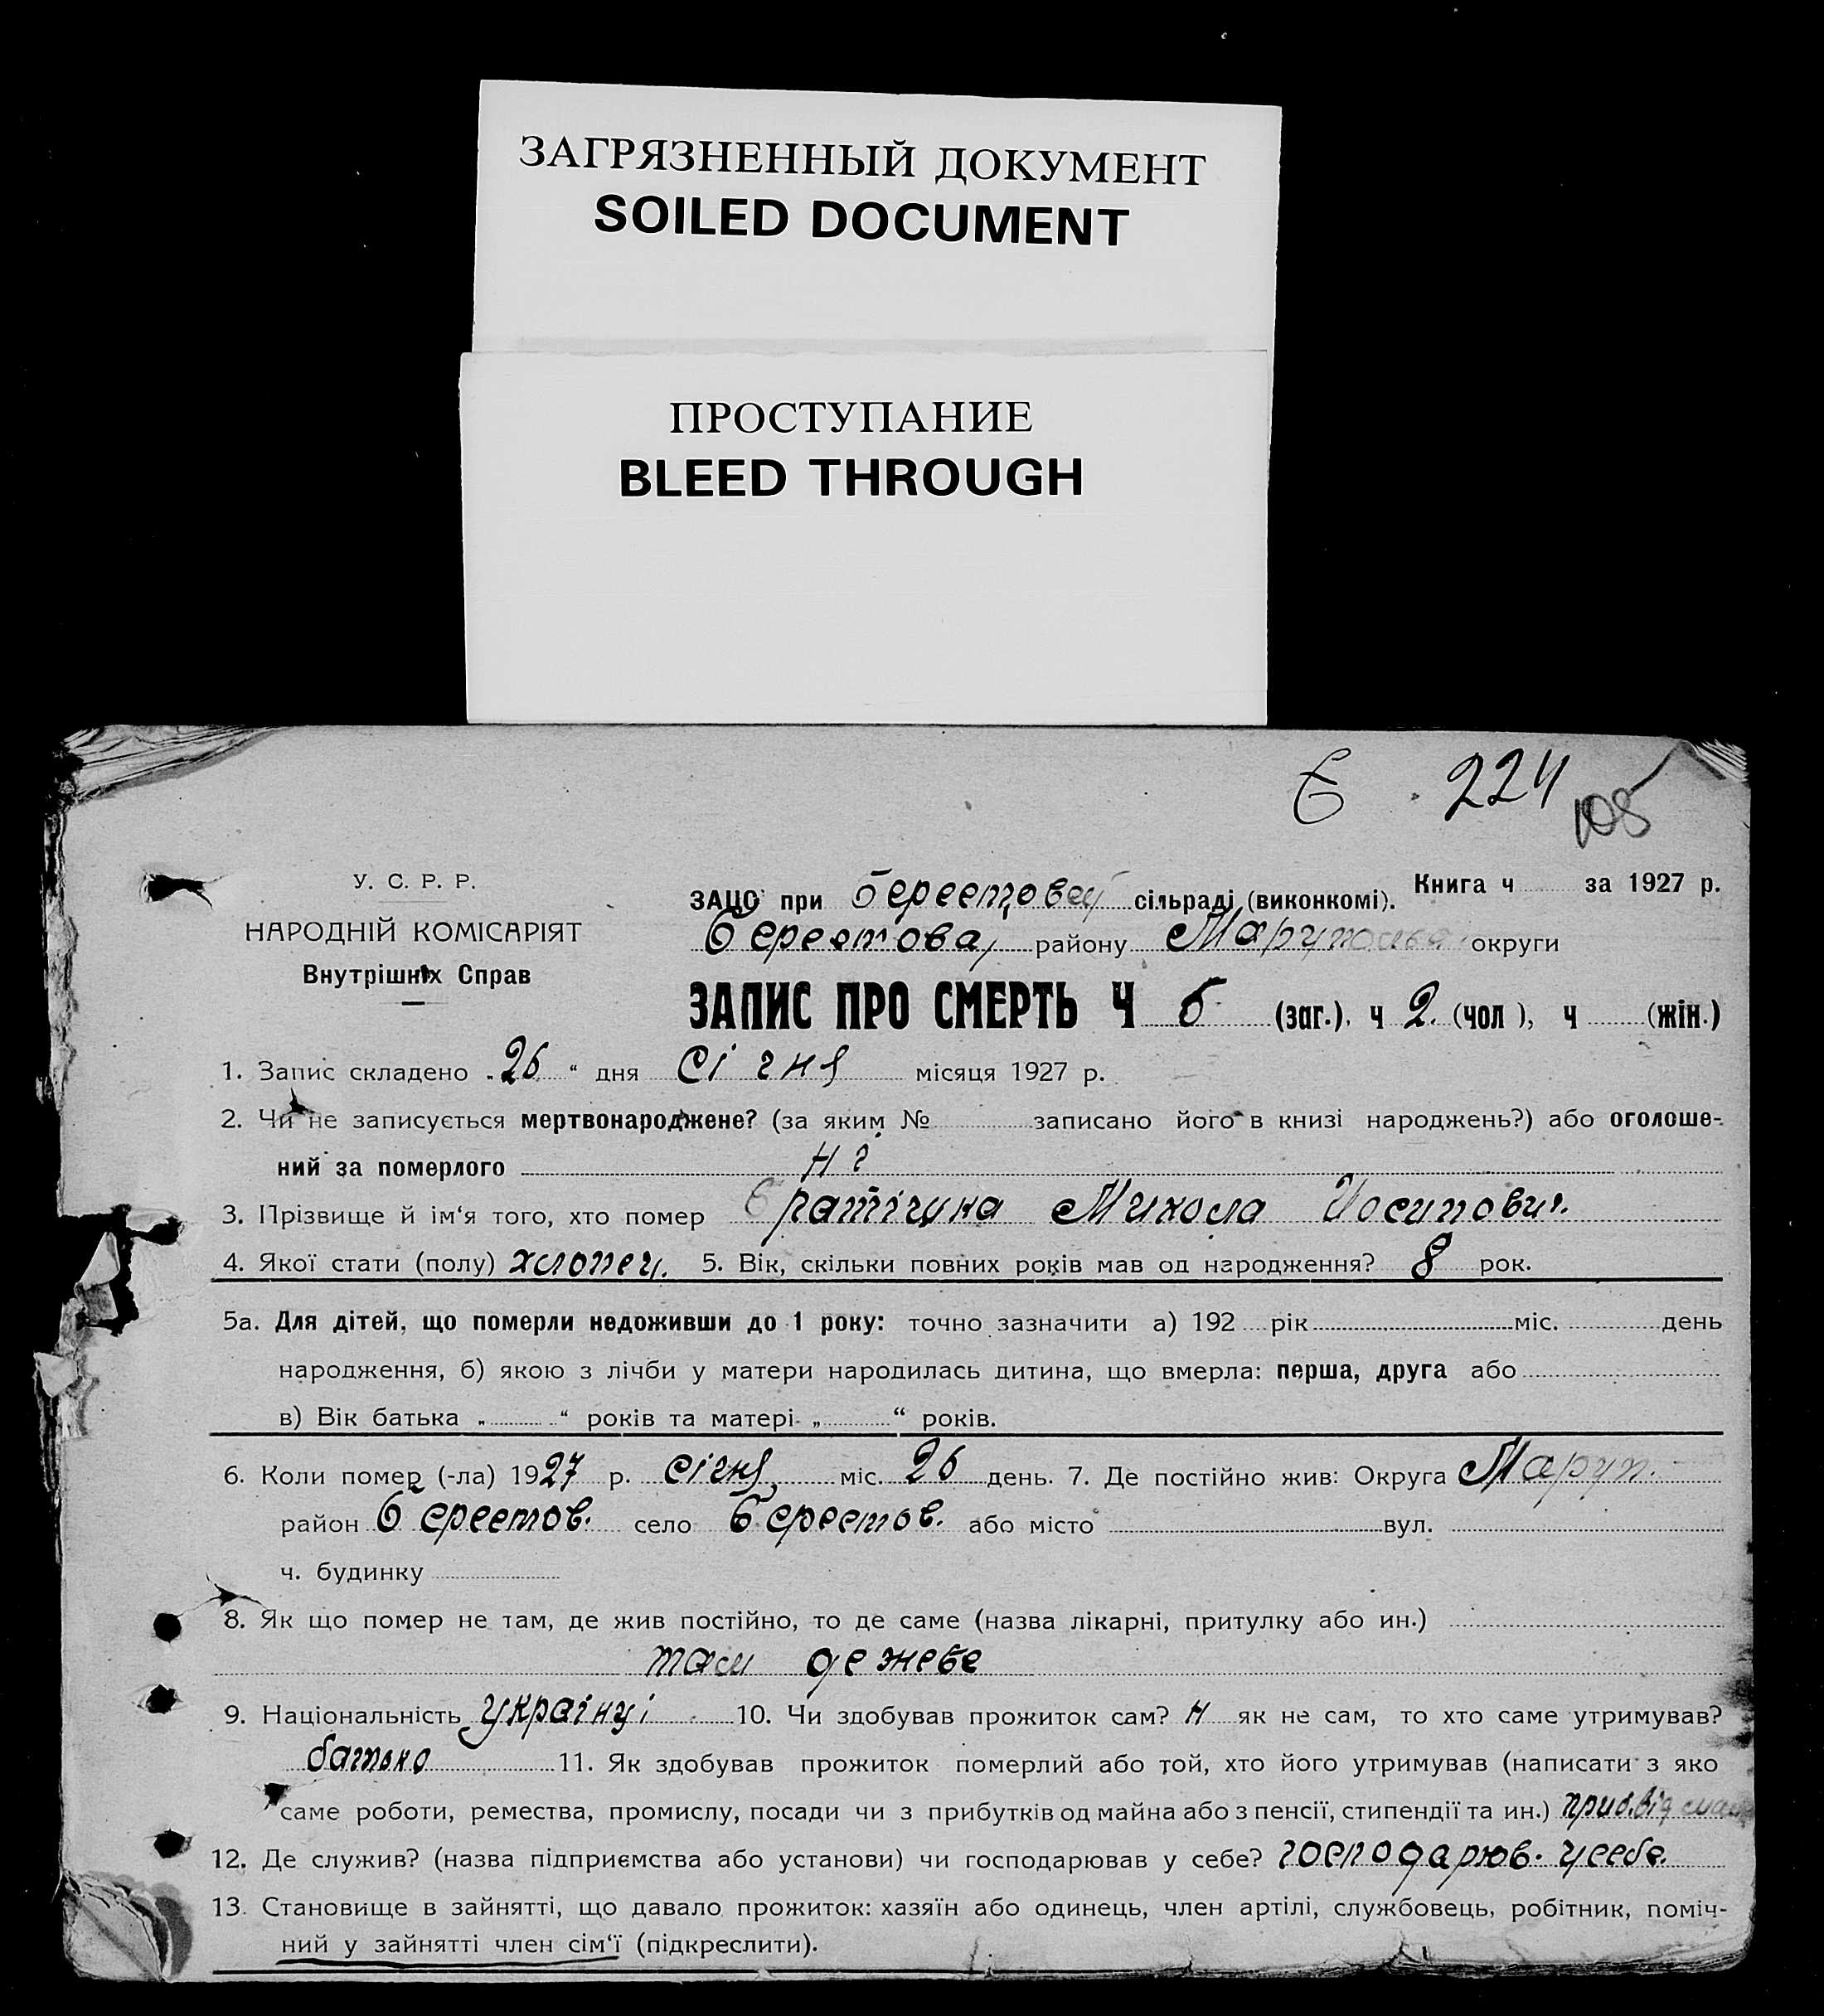 ЗАГРЯЗНЕННЫЙ ДОКУМЕНТ
SOILED DOCUMENT
ПРОСТУПАНИЕ
BLEED THROUGH
224
105
У. С. Р. Р.
НАРОДНІЙ КОМІСАРІЯТ
Внутрішніх Справ
Книга ч за 1927 р.
ЗАЦС при Берестовец сільраді (виконкомі).
Берестова, району Маруполь округи
ЗАПИС ПРО СМЕРТЬ Ч 6 (заг.), ч 2. (чол), ч (жін.)
1. Запис складено „26“ дня січня місяця 1927 р.
2. Чи не записується мертвонароджене? (за яким № записано його в книзі народжень?) або оголоше-
ний за померлого Ні
3. Прізвище й ім‘я того, хто помер Микола Йосипович.
4. Якої стати (полу) хлопец. 5. Вік, скільки повних років мав од народження? 8 рок.
5а. Для дітей, що померли недоживши до 1 року: точно зазначити а) 192 рік міс. день
народження, б) якою з лічби у матери народилась дитина, що вмерла: перша, друга або
в) Вік батька „ “ років та матері „ “ років.
6. Коли помер (-ла) 1927 р. січня міс. 26 день. 7. Де постійно жив: Округа Маруп.
район Берестов. село Берестов. або місто вул.
ч. будинку
8. Як що помер не там, де жив постійно, то де саме (назва лікарні, притулку або ин.)
там де живе
9. Національність українці 10. Чи здобував прожиток сам? Н як не сам, то хто саме утримував?
батько 11. Як здобував прожиток померлий або той, хто його утримував (написати з яко
саме роботи, ремества, промислу, посади чи з прибутків од майна або з пенсії, стипендії та ин.) приб. від
12. Де служив? (назва підприємства або установи) чи господарював у себе? господарюв. у себе.
13. Становище в зайнятті, що давало прожиток: хазяїн або одинець, член артілі, службовець, робітник, поміч-
ний у зайнятті член сім‘ї (підкреслити).